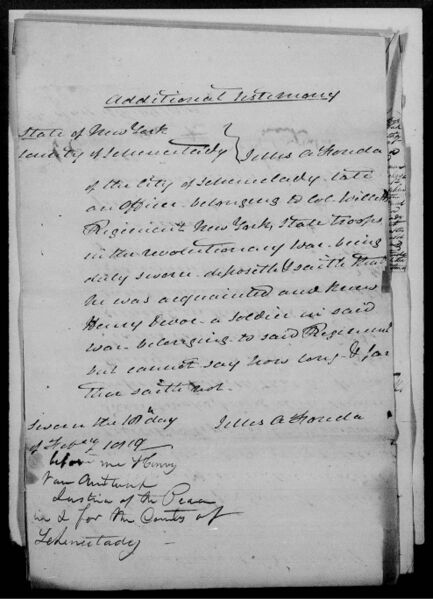 Additional Testimony
State of New York
County of Schenectady } Jelles A Fonda
of the City of Schenectady late
an Officer belonging to Col. Willetts
Regiment New York State Troops
in the revolutionary war being
duly sworn deposeth & saith that
he was acquainted and knew
Henry Devoe a soldier in said
war belonging to said Regiment
but cannot say how long & far
ther saith not
Sworn the 18th day
of Feby 1819
Jelles A Fonda
before me Henry
Van Antwerp
Justice of the Peace
in & for the County of
Schenectady